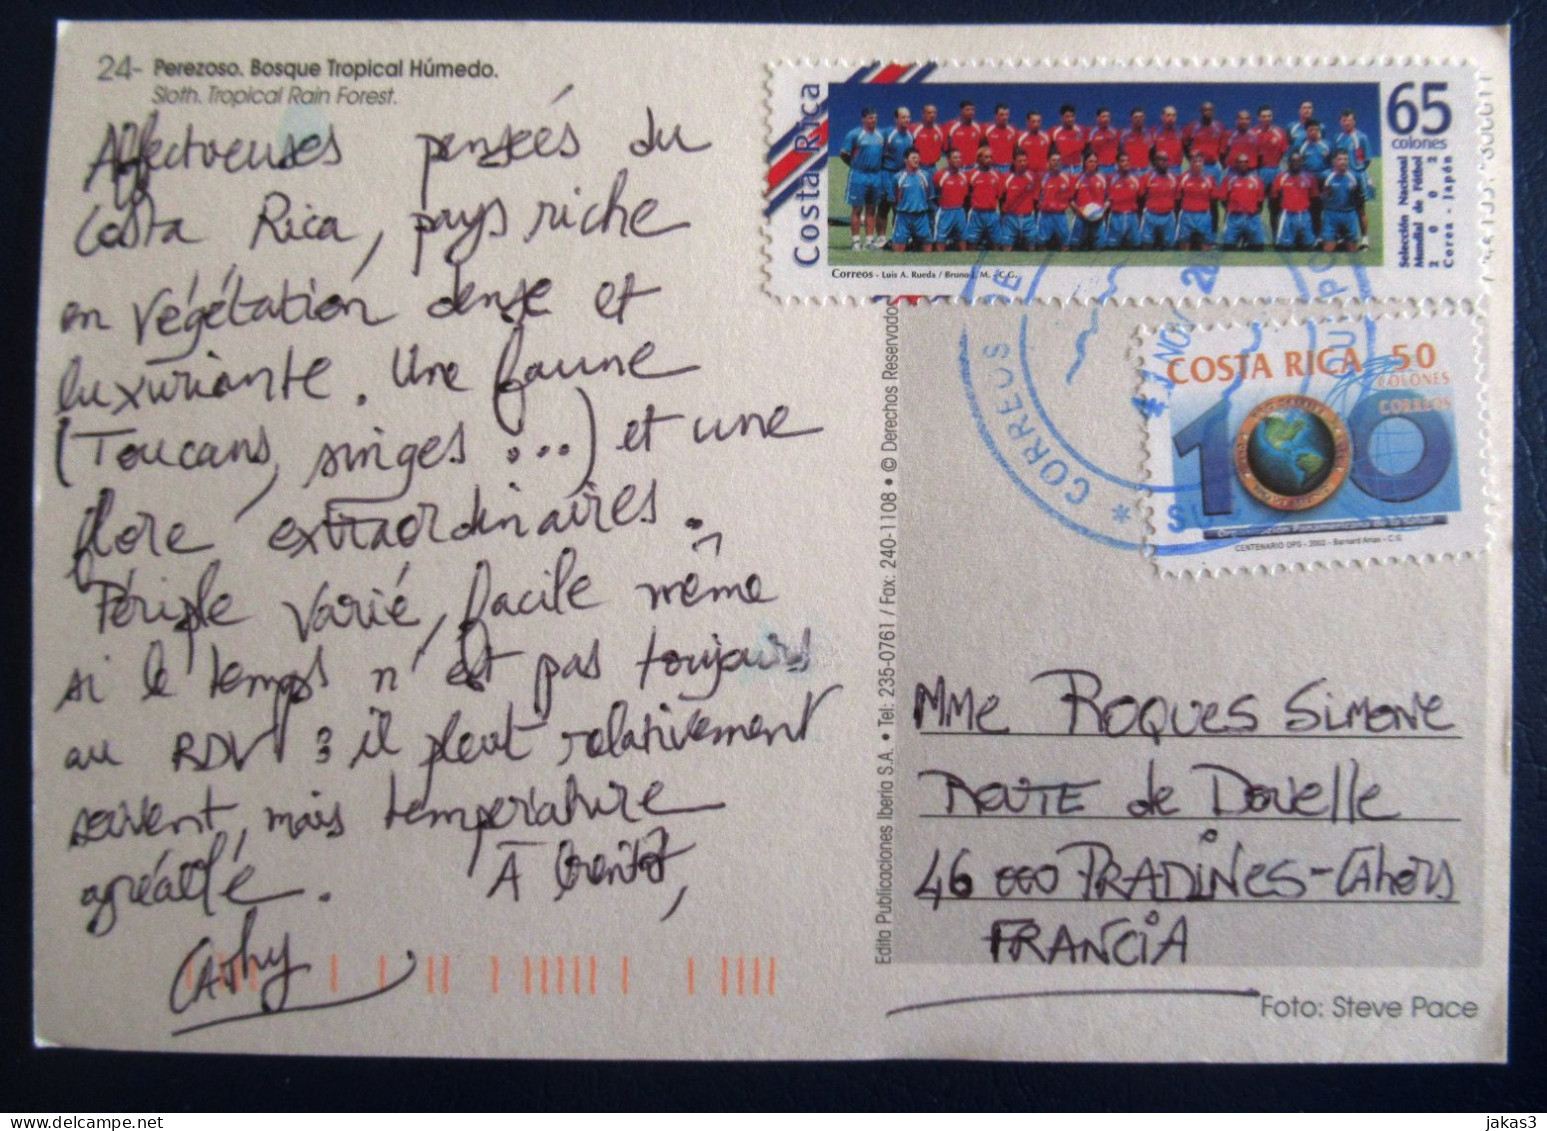 24- Perezoso. Bosque Tropical Húmedo.
Sloth. Tropical Rain Forest.
Affectueuses pensées du
Costa Rica, pays riche
en végétation dense et
luxuriante. Une faune
(Toucans, singes ...) et une
flore extraordinaires.
Périple varié, facile même
si le temps n'est pas toujours
au RDV : il pleut relativement
souvent, mais température
agréable. À bientôt,
Cathy
Costa Rica
65
colones
Selección Nacional
Mundial de Fútbol
2 0 0 2
Corea - Japón
Correos - Luis A. Rueda / Bruno J. M. - C.G.
COSTA RICA 50
COLONES
CORREOS
100
CENTENARIO OPS - 2002 - Bernard Arias - C.G.
* CORREOS DE
NOV
Edita Publicaciones Iberia S.A. • Tel: 235-0761 / Fax: 240-1108 • © Derechos Reservados
Mme ROQUES Simone
ROUTE de Douelle
46 000 PRADINES-CAhors
FRANCIA
Foto: Steve Pace
jakas3